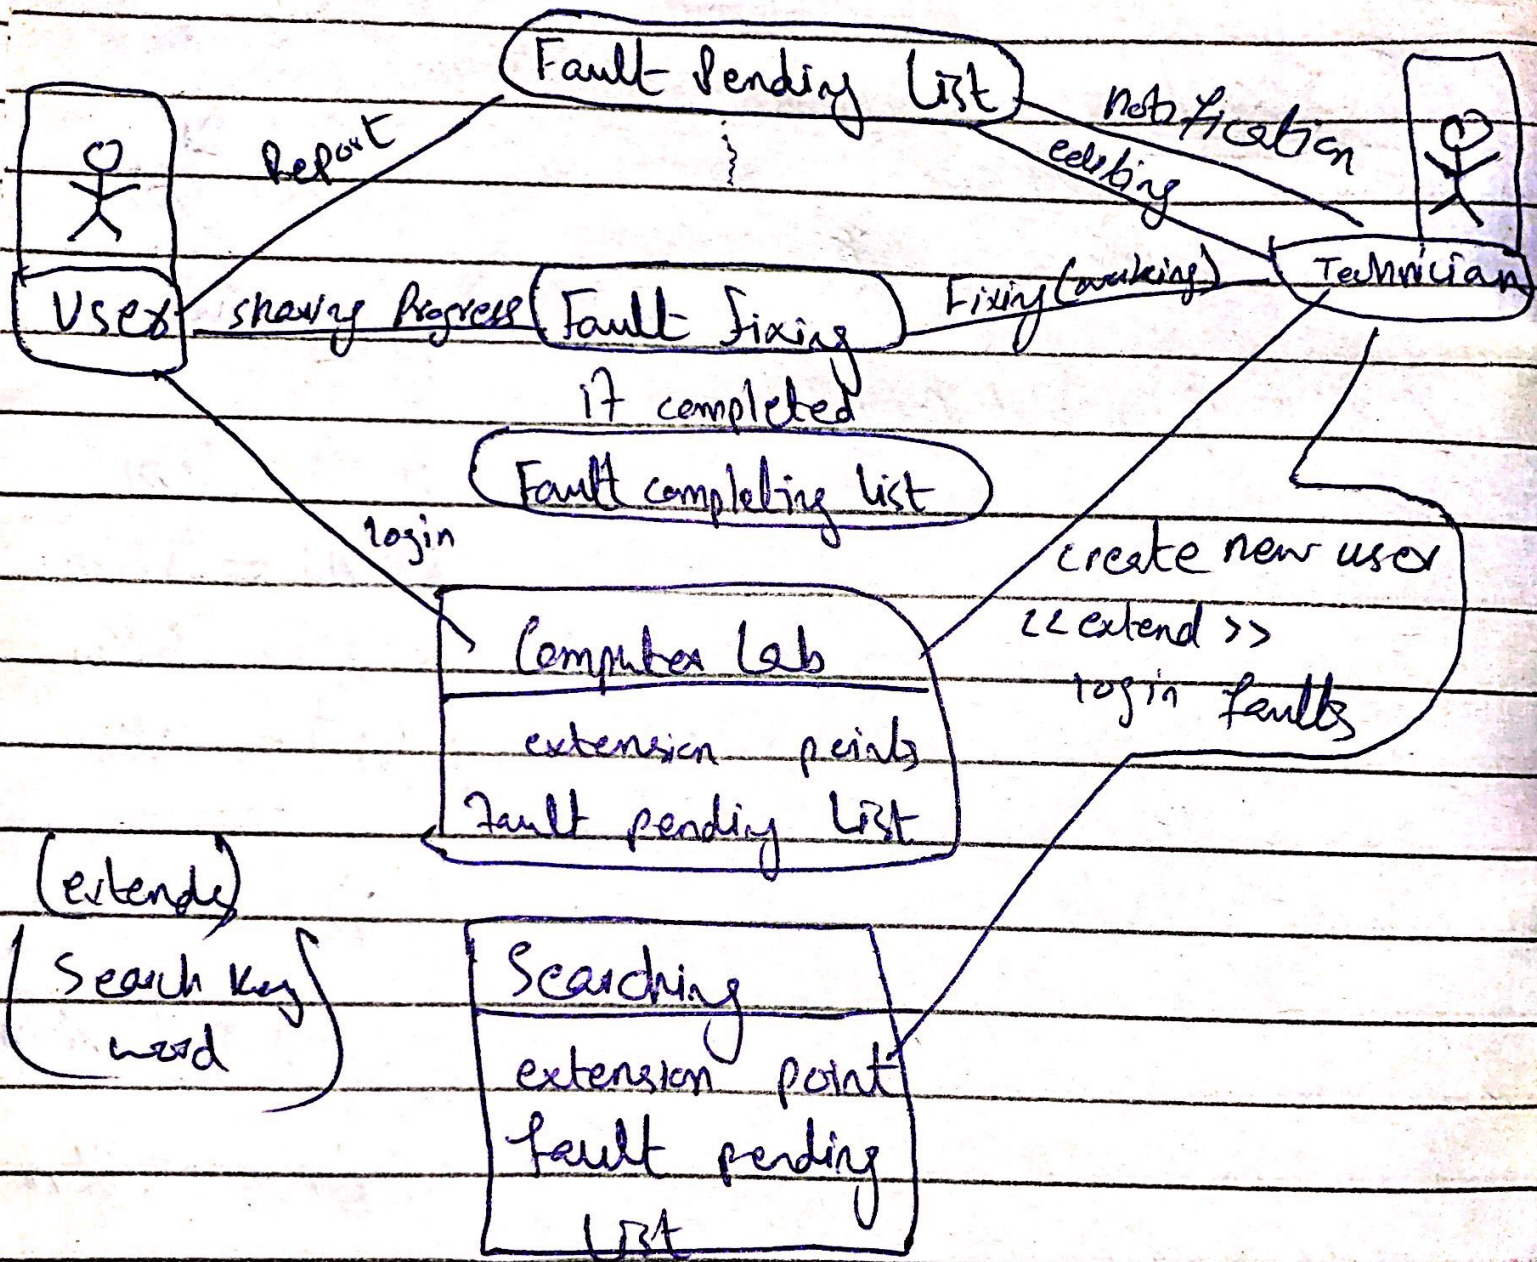 Fault Pending List
Report
notification
editing
User
sharing Progress
Fault fixing
Fixing (making)
Technician
if completed
Fault completing list
login
create new user
<<extend>>
login faults
Computer Lab
extension points
Fault pending List
(extends)
Search Key
word
Searching
extension point
fault pending
List